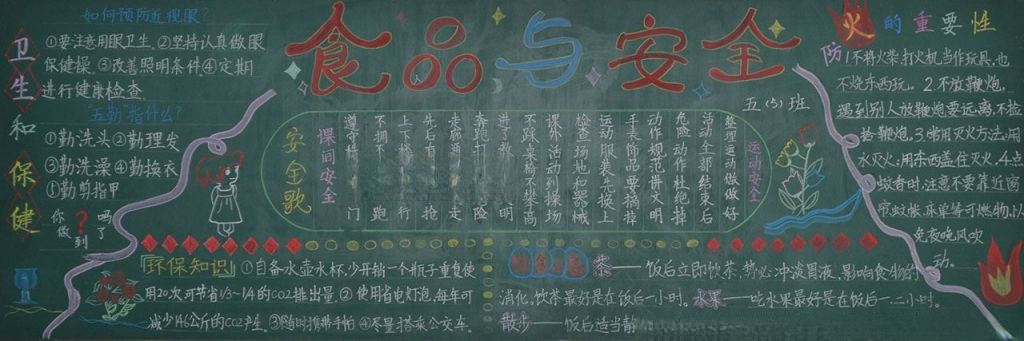 食品与安全
五(3)班
卫生和保健
如何预防近视眼?
①要注意用眼卫生、②坚持认真做眼
保健操、③改善照明条件④定期
进行健康检查
五勤指什么?
①勤洗头②勤理发
③勤洗澡④勤换衣
⑤勤剪指甲
你做到了吗?
安全歌
课间安全
运动安全
运动服装先换上
手表饰品要摘掉
动作规范讲文明
危险动作杜绝掉
活动全部结束后
整理运动做做好
防火的重要性
1不将火柴、打火机当作玩具,也
不烧东西玩。2.不放鞭炮,
遇到别人放鞭炮要远离,不捡
拾鞭炮。3.常用灭火方法:用
水灭火;用东西盖住灭火。4.点
蚊香时,注意不要靠近窗
帘、蚊帐、床单等可燃物,以
免夜晚风吹
动。
『环保知识』①自备水壶水杯,少开销一个瓶子重复使
用20次可节省1/3~1/4的CO2排出量。②使用省电灯泡,每年可
减少146公斤的CO2产生。③随时携带手帕④尽量搭乘公交车。
茶——饭后立即饮茶,势必冲淡胃液,影响食物的
消化,饮茶最好是在饭后一小时。水果——吃水果最好是在饭后一二小时。
散步——饭后适当静